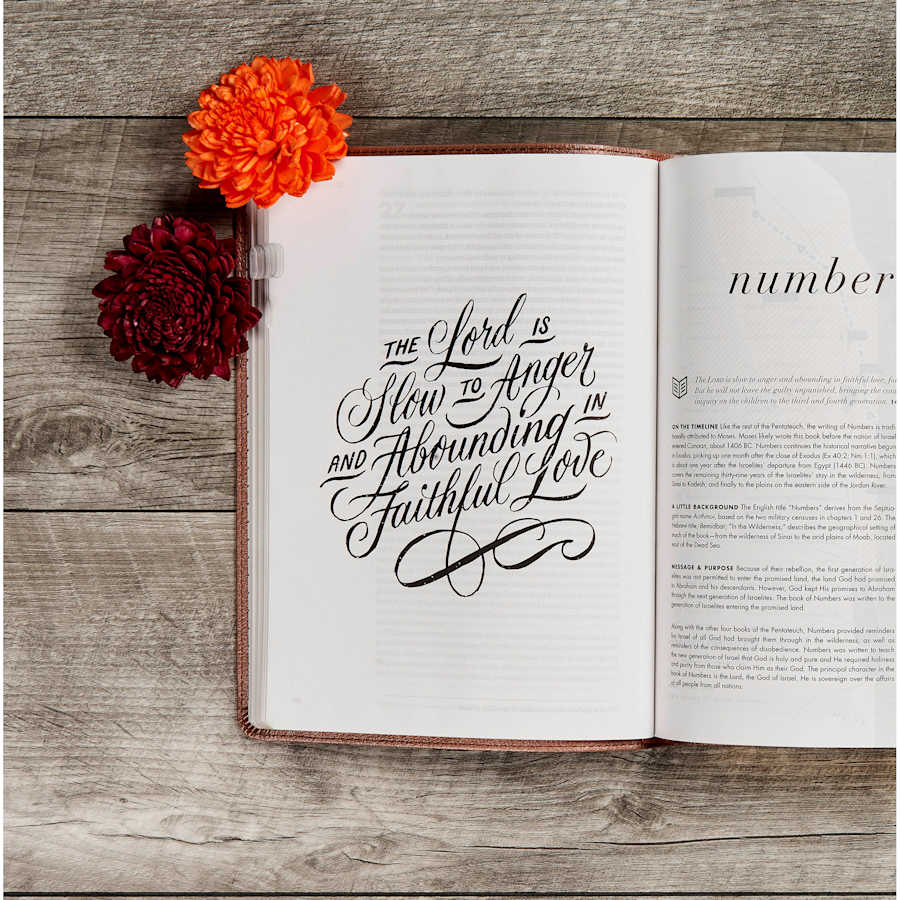 THE Lord IS
Slow TO Anger
AND Abounding IN
Faithful Love
27
number
The LORD is slow to anger and abounding in faithful love, fo
But he will not leave the guilty unpunished, bringing the
iniquity on the children to the third and fourth generation.
ON THE TIMELINE Like the rest of the Pentateuch, the writing of Numbers is tradi-
tionally attributed to Moses. Moses likely wrote this book before the nation of Israel
entered Canaan, about 1406 BC. Numbers continues the historical narrative begun
in Exodus, picking up one month after the close of Exodus (Ex 40:2; Nm 1:1), which
is about one year after the Israelites' departure from Egypt (1446 BC). Numbers
covers the remaining thirty-nine years of the Israelites' stay in the wilderness, from
Sinai to Kadesh, and finally to the plains on the eastern side of the Jordan River.
A LITTLE BACKGROUND The English title "Numbers" derives from the Septua-
gint name Arithmoi, based on the two military censuses in chapters 1 and 26. The
Hebrew title, Bemidbar, "In the Wilderness," describes the geographical setting of
much of the book—from the wilderness of Sinai to the arid plains of Moab, located
east of the Dead Sea.
MESSAGE & PURPOSE Because of their rebellion, the first generation of Isra-
elites was not permitted to enter the promised land, the land God had promised
to Abraham and his descendants. However, God kept His promises to Abraham
through the next generation of Israelites. The book of Numbers was written to the
generation of Israelites entering the promised land.
Along with the other four books of the Pentateuch, Numbers provided reminders
to Israel of all God had brought them through in the wilderness, as well as
reminders of the consequences of disobedience. Numbers was written to teach
the new generation of Israel that God is holy and pure and He required holiness
and purity from those who claim Him as their God. The principal character in the
book of Numbers is the Lord, the God of Israel. He is sovereign over the affairs
of all people from all nations.